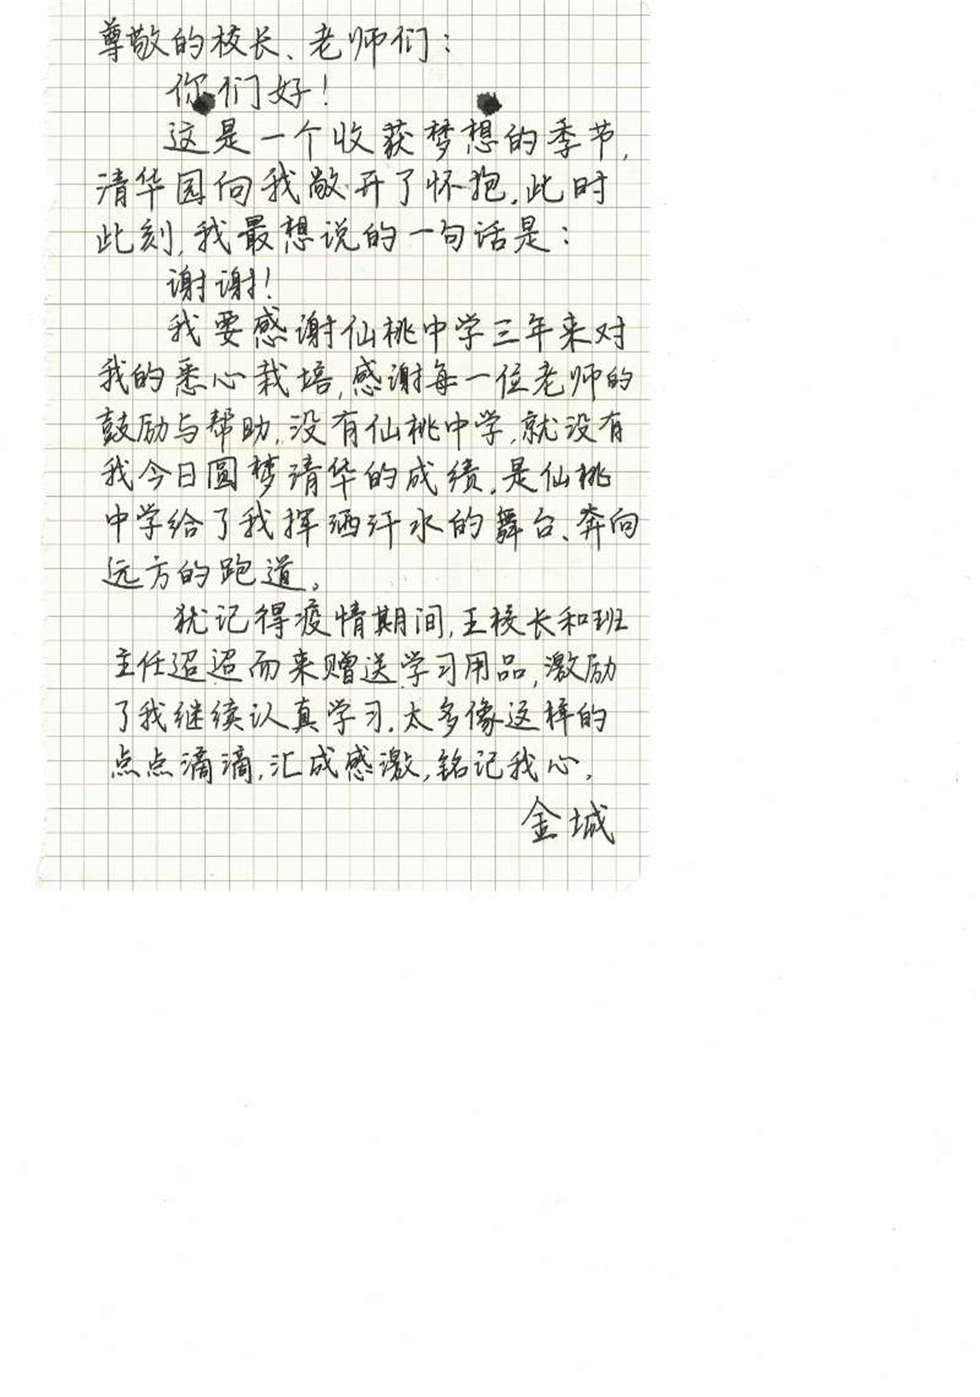 尊敬的校长、老师们：
你们好！
这是一个收获梦想的季节，
清华园向我敞开了怀抱，此时
此刻，我最想说的一句话是：
谢谢！
我要感谢仙桃中学三年来对
我的悉心栽培，感谢每一位老师的
鼓励与帮助，没有仙桃中学，就没有
我今日圆梦清华的成绩，是仙桃
中学给了我挥洒汗水的舞台、奔向
远方的跑道。
犹记得疫情期间，王校长和班
主任迢迢而来赠送学习用品，激励
了我继续认真学习，太多像这样的
点点滴滴，汇成感激，铭记我心，
金城